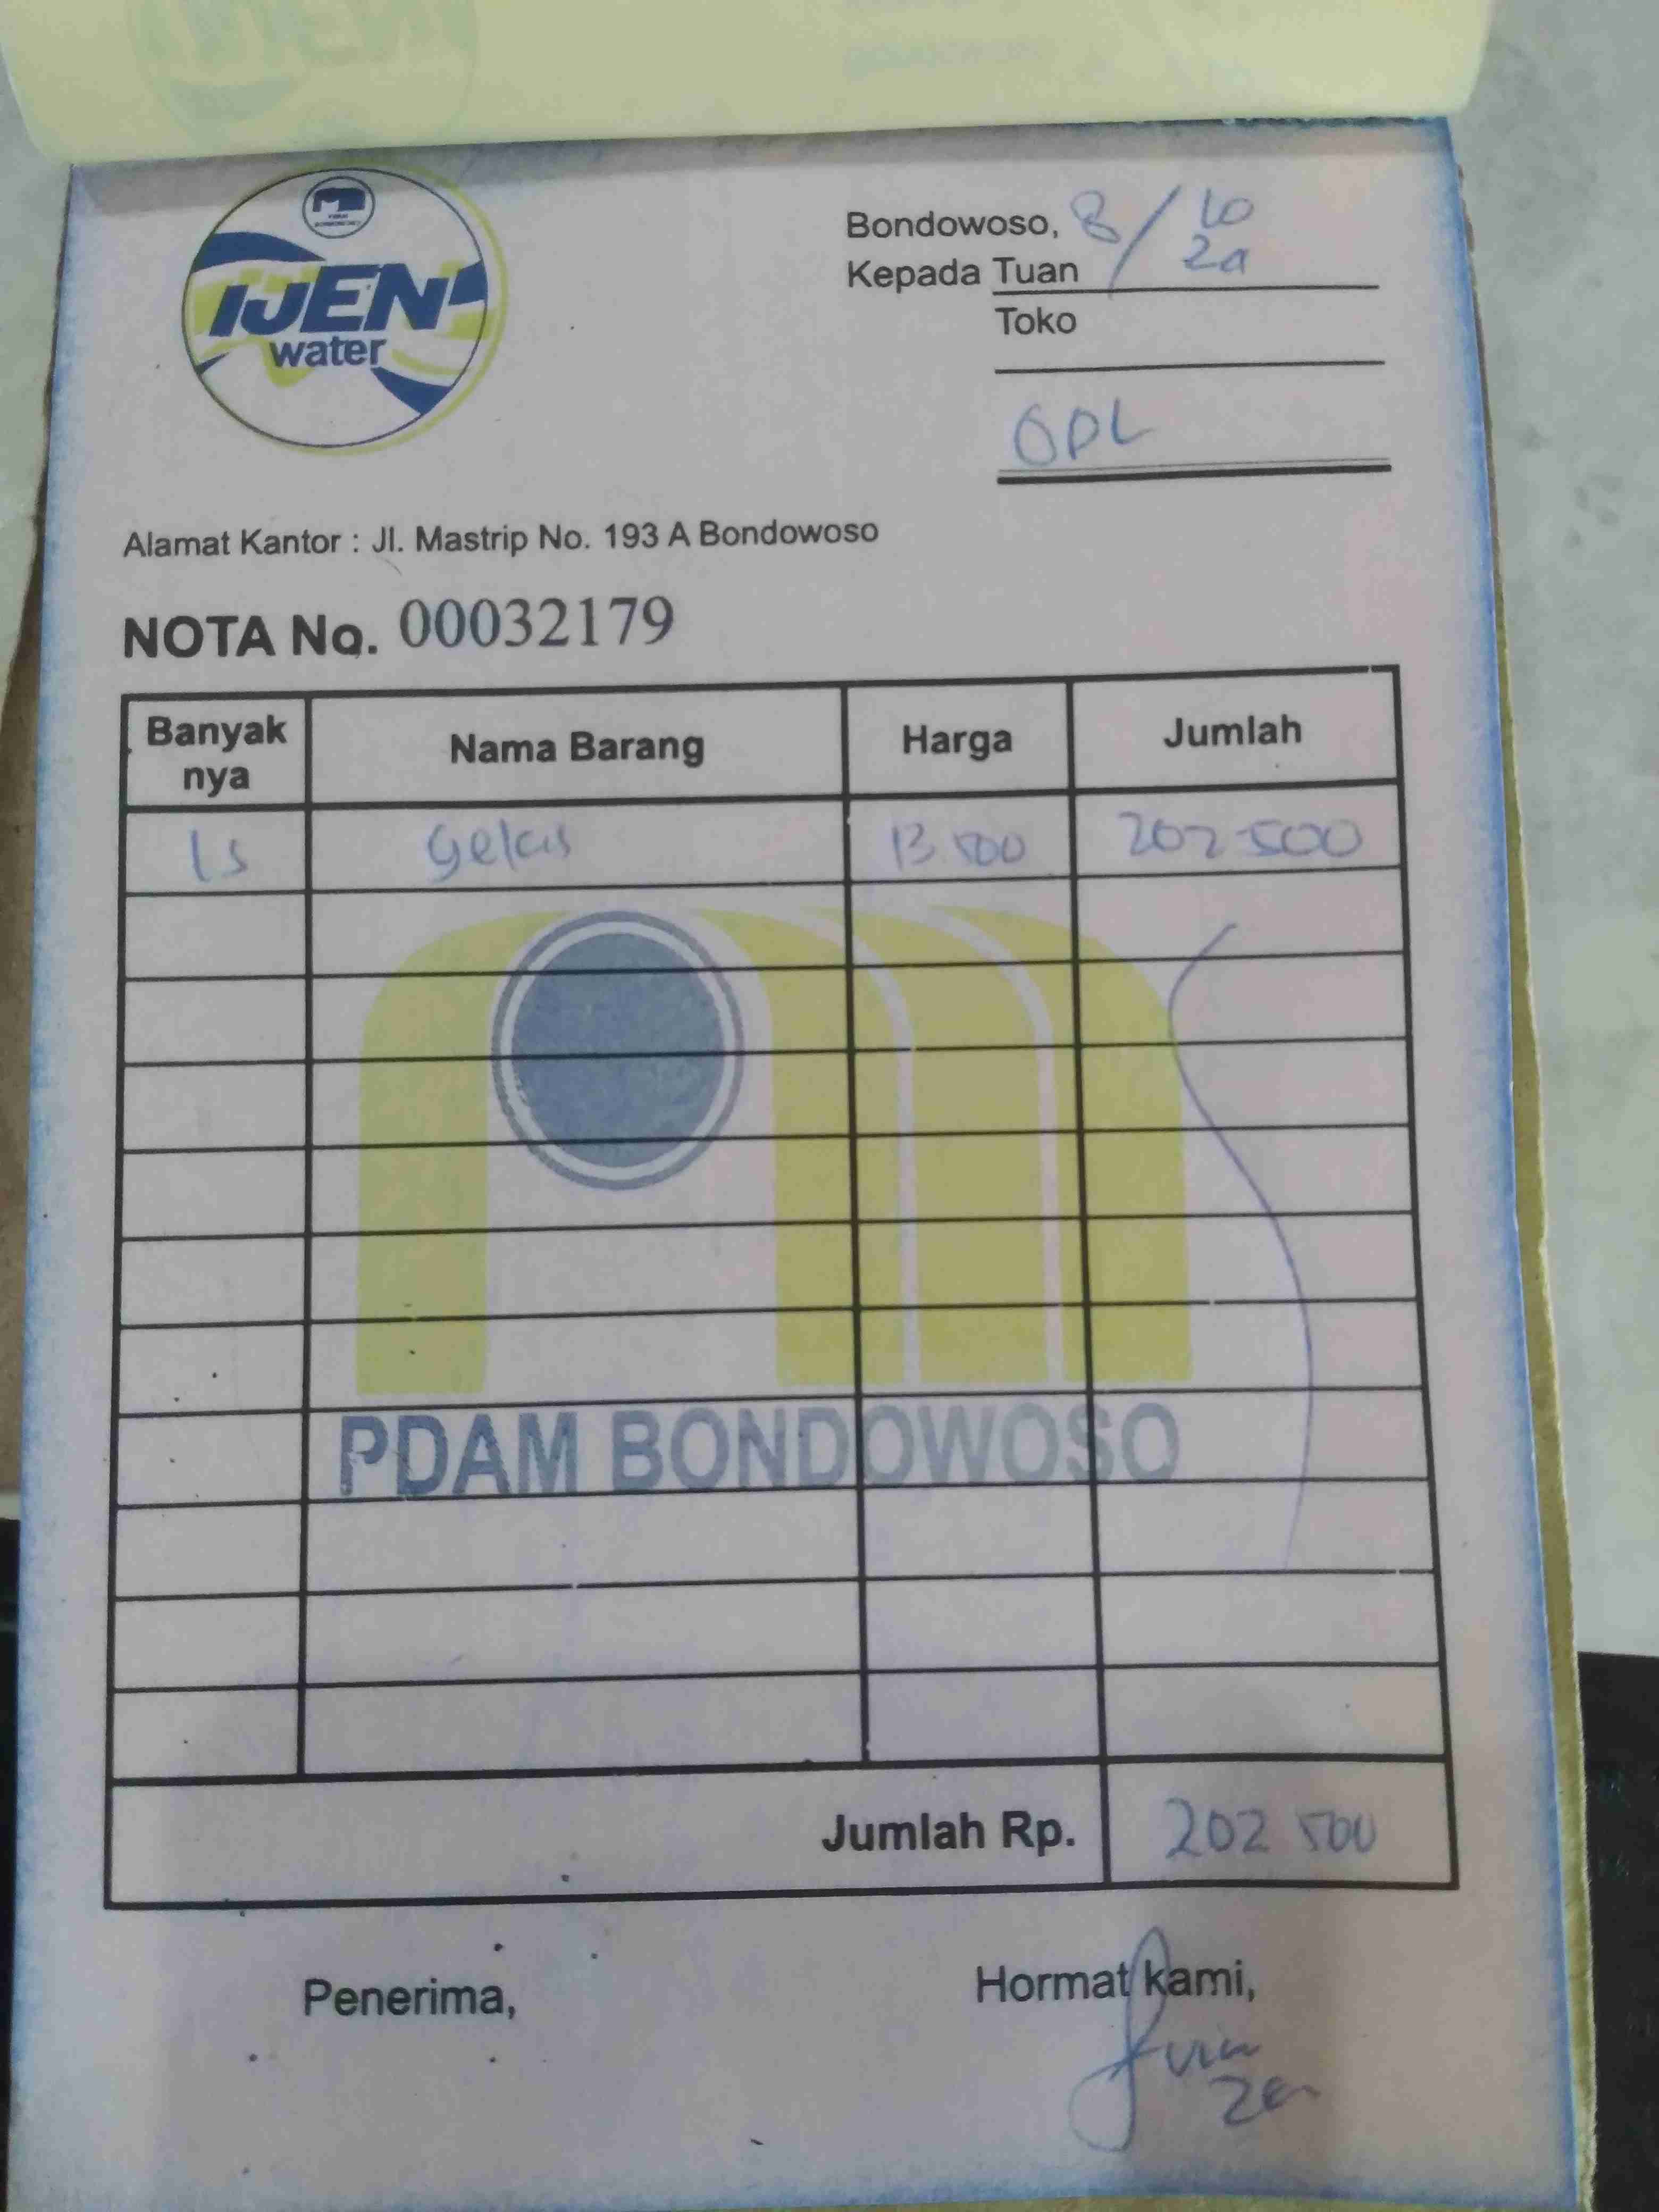 IJEN
water
Bondowoso, 8/10
Kepada Tuan
Toko
OPL
Alamat Kantor : Jl. Mastrip No. 193 A Bondowoso
NOTA No. 00032179
Banyak nya Nama Barang Harga Jumlah
15 gelas 13 500 202 500
PDAM BONDOWOSO
Jumlah Rp. 202 500
Penerima, Hormat kami,